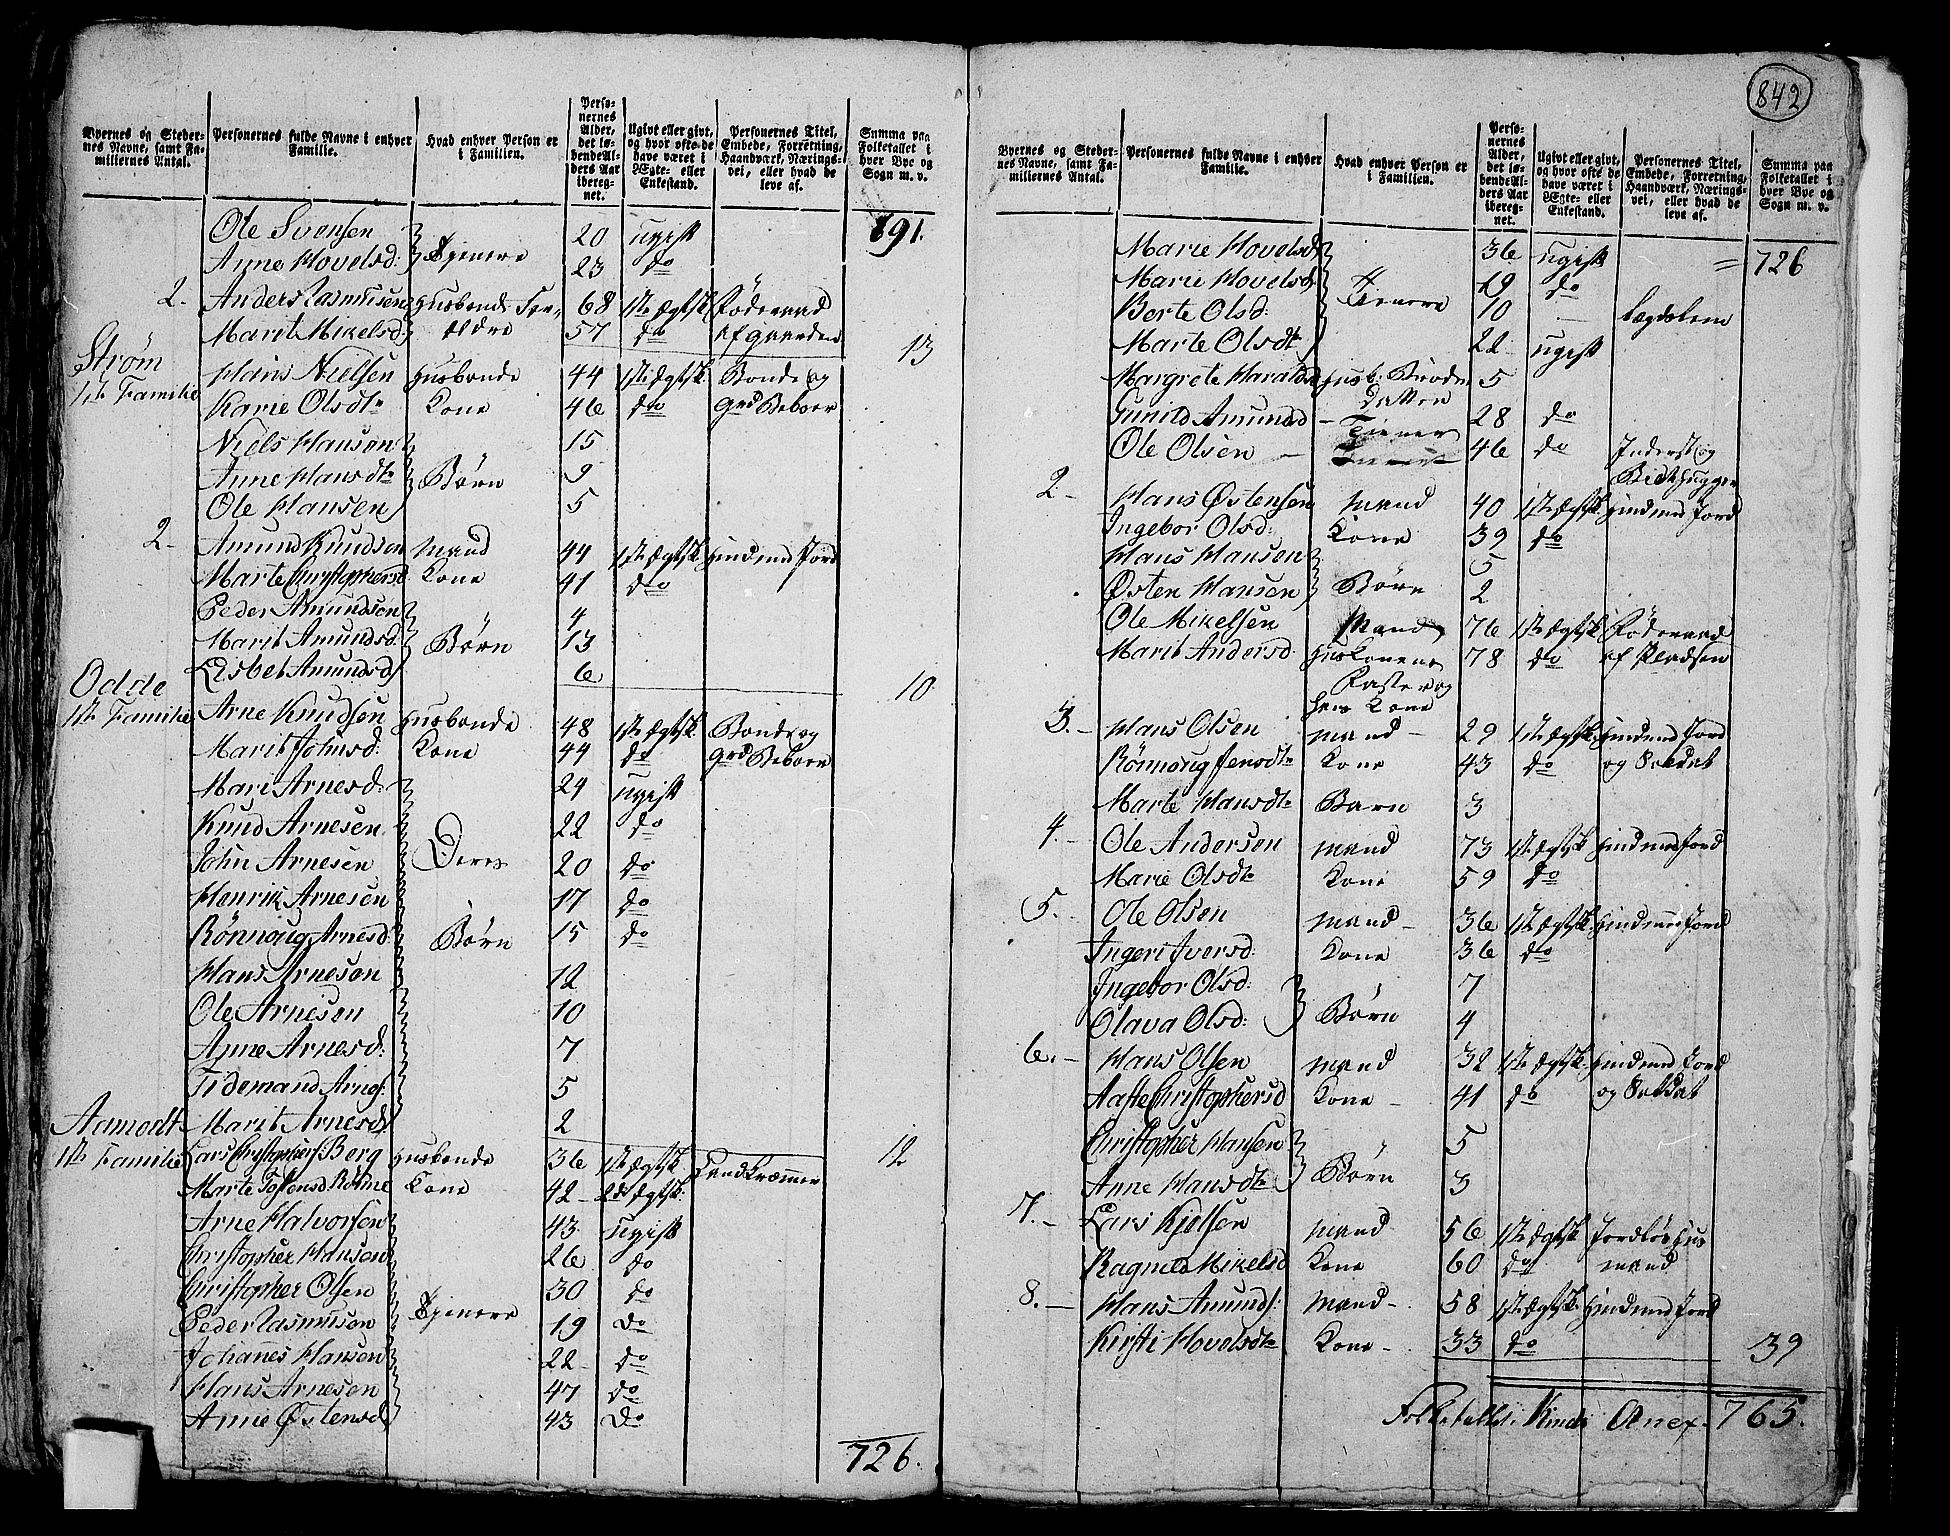 842
Byernes og Steder-
nes Navne, samt Fa-
miliernes Antal.
Personernes fulde Navne i enhver
Familie.
Hvad enhver Person er
i Familien.
Perso-
nernes
Alder,
det lø-
bende Al-
ders Aar
iberegnet.
Ugivt eller givt,
og hvor ofte de
have været i
Ægte- eller
Enkestand.
Personernes Titel,
Embede, Forretning,
Haandværk, Nærings-
vei, eller hvad de
leve af.
Summa paa
Folketallet i
hver Bye og
Sogn m. v.
691.
Ole Svensen 20 ugift
Anne Hovelsd: Tjenere 23 do
2. Anders Rasmusen Husbonds For- 68 1ste Ægtsk. Föderaad
Marit Mikelsd: ældre 57 do af gaarden 13
Strøm
1ste Familie Hans Nielsen Husbonde 44 1ste Ægtsk. Bonde og
Karie Olsdtr Kone 46 do Grd Beboer
Niels Hansen 15
Anne Hansdtr Börn 9
Ole Hansen 5
2- Amund Knudsen Mand 44 1ste Ægtsk. Huusmd med Jord
Marte Christophersd. Kone 41 do
Peder Amundsen 4
Marit Amundsd. Börn 13
Lisbet Amundsd 6 10
Odde
1ste Familie Arne Knudsen Husbonde 48 1ste Ægtsk. Bonde og
Marit Johnsd: Kone 44 do Grd Beboer
Mari Arnesd: 24 ugift
Knud Arnesen 22 do
John Arnesen Deres 20 do
Henrik Arnesen 17 do
Rönnoug Arnesd. Börn 15 do
Hans Arnesen 12
Ole Arnesen 10
Anne Arnesd: 7
Tidemand Arnes: 5
Marit Arnesd 2 12
Aamodt
1ste Familie Lars Christophers: Berg Husbonde 36 1ste Ægtsk. Landkræmmer
Marte Tostensd Römme Kone 42- 2det Ægtsk.
Arne Halvorsen 43 ugift
Christopher Hansen 26 do
Christopher Olsen 30 do
Peder Rasmusen Tjenere 19 do
Johannes Hansen 22- do
Hans Arnesen 47 do
Anne Østensd 43 do
726.
Byernes og Steder-
nes Navne, samt Fa-
miliernes Antal.
Personernes fulde Navne i enhver
Familie.
Hvad enhver Person er
i Familien.
Perso-
nernes
Alder,
det lø-
bende Al-
ders Aar
iberegnet.
Ugivt eller givt,
og hvor ofte de
have været i
Ægte- eller
Enkestand.
Personernes Titel,
Embede, Forretning,
Haandværk, Nærings-
vei, eller hvad de
leve af.
Summa paa
Folketallet i
hver Bye og
Sogn m. v.
Marie Hovelsd 36 ugift = 726
Marie Hovelsd. 19 do
Berte Olsd: Tienere 10 — Lægdslem
Marte Olsdtr 22 ugift
Margrete Haralds. Husb: Broder 5
datter
Gunild Amundsd - Tiener 28 do
Ole Olsen - 46 do Inderst og
Bielkhugger
2- Hans Østensen Mand 40 1ste Ægtsk. Huusmd med Jord
Ingebor Olsd: Kone 39 do
Hans Hansen 5
Østen Hansen Börn 2
Ole Mikelsen Mand 76 1ste Ægtsk. Föderaad
Marit Andersd. Huskonens 78 do af Pladsen
Faster og
hans Kone
3.- Hans Olsen Mand - 29 1ste Ægtsk. Huusmd med Jord
Rönnoug Jensdtr Kone 43 do og Soldat
Marte Hansdtr Barn 3
4.- Ole Andersen Mand 73 1ste Ægtsk. Huusmd med Jord
Marie Olsdtr Kone 59 do
5.- Ole Olsen Mand- 36 1ste Ægtsk. Huusmd med Jord
Ingeri Iversd. Kone 36 do
Ingebor Olsd: 7
Olava Olsd: Börn 4
6.- Hans Olsen Mand 32 1ste Ægtsk. Huusmd med Jord
Aaste Christophersd Kone - 41 do og Soldat
Christopher Hansen 5
Anne Hansdtr Börn 3
7.- Lars Kjelsen Mand 56 1ste Ægtsk. Jordlös Huus
Ragnild Mikelsd Kone 60 do mand
8.- Hans Amunds: Mand- 58 1ste Ægtsk. Huusmd med Jord
Kirsti Hovelsdtr Kone - 33 do 39
Folketallet i Kinds Anex. 765.